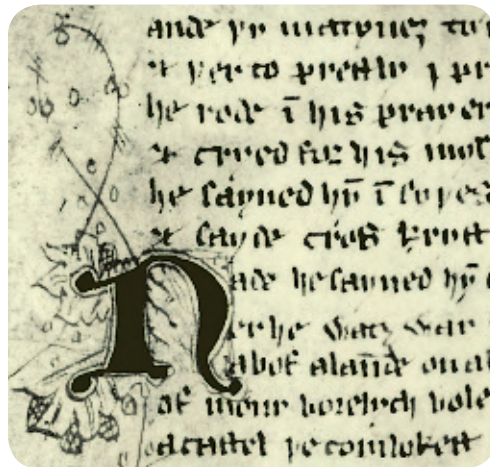 ande þy matyneȝ to
& þerto prestly I pr
he rode ī his prayer
& cryed for his
he sayned hȳ ī syþes
& sayde cros kryst
Nade he sayned hȳ
er he watȝ war
abof a laūde on a
of mony borelych bole
a castel þe comlokest